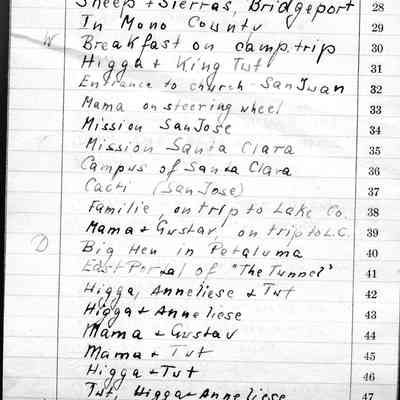 Sheep + Sierras, Bridgeport 28
In Mono County 29
W Breakfast on camp.trip 30
Higga + King Tut 31
Entrance to church San Juan 32
Mama on steering wheel 33
Mission San Jose 34
Mission Santa Clara 35
Campus of Santa Clara 36
Cacti (San Jose) 37
Familie, on trip to Lake Co. 38
Mama + Gustav, on trip to L.C. 39
D Big Hen in Petaluma 40
East Portal of "The Tunnel" 41
Higga, Anneliese + Tut 42
Higga + Anneliese 43
Mama + Gustav 44
Mama + Tut 45
Higga + Tut 46
Tut, Higga + Anneliese 47